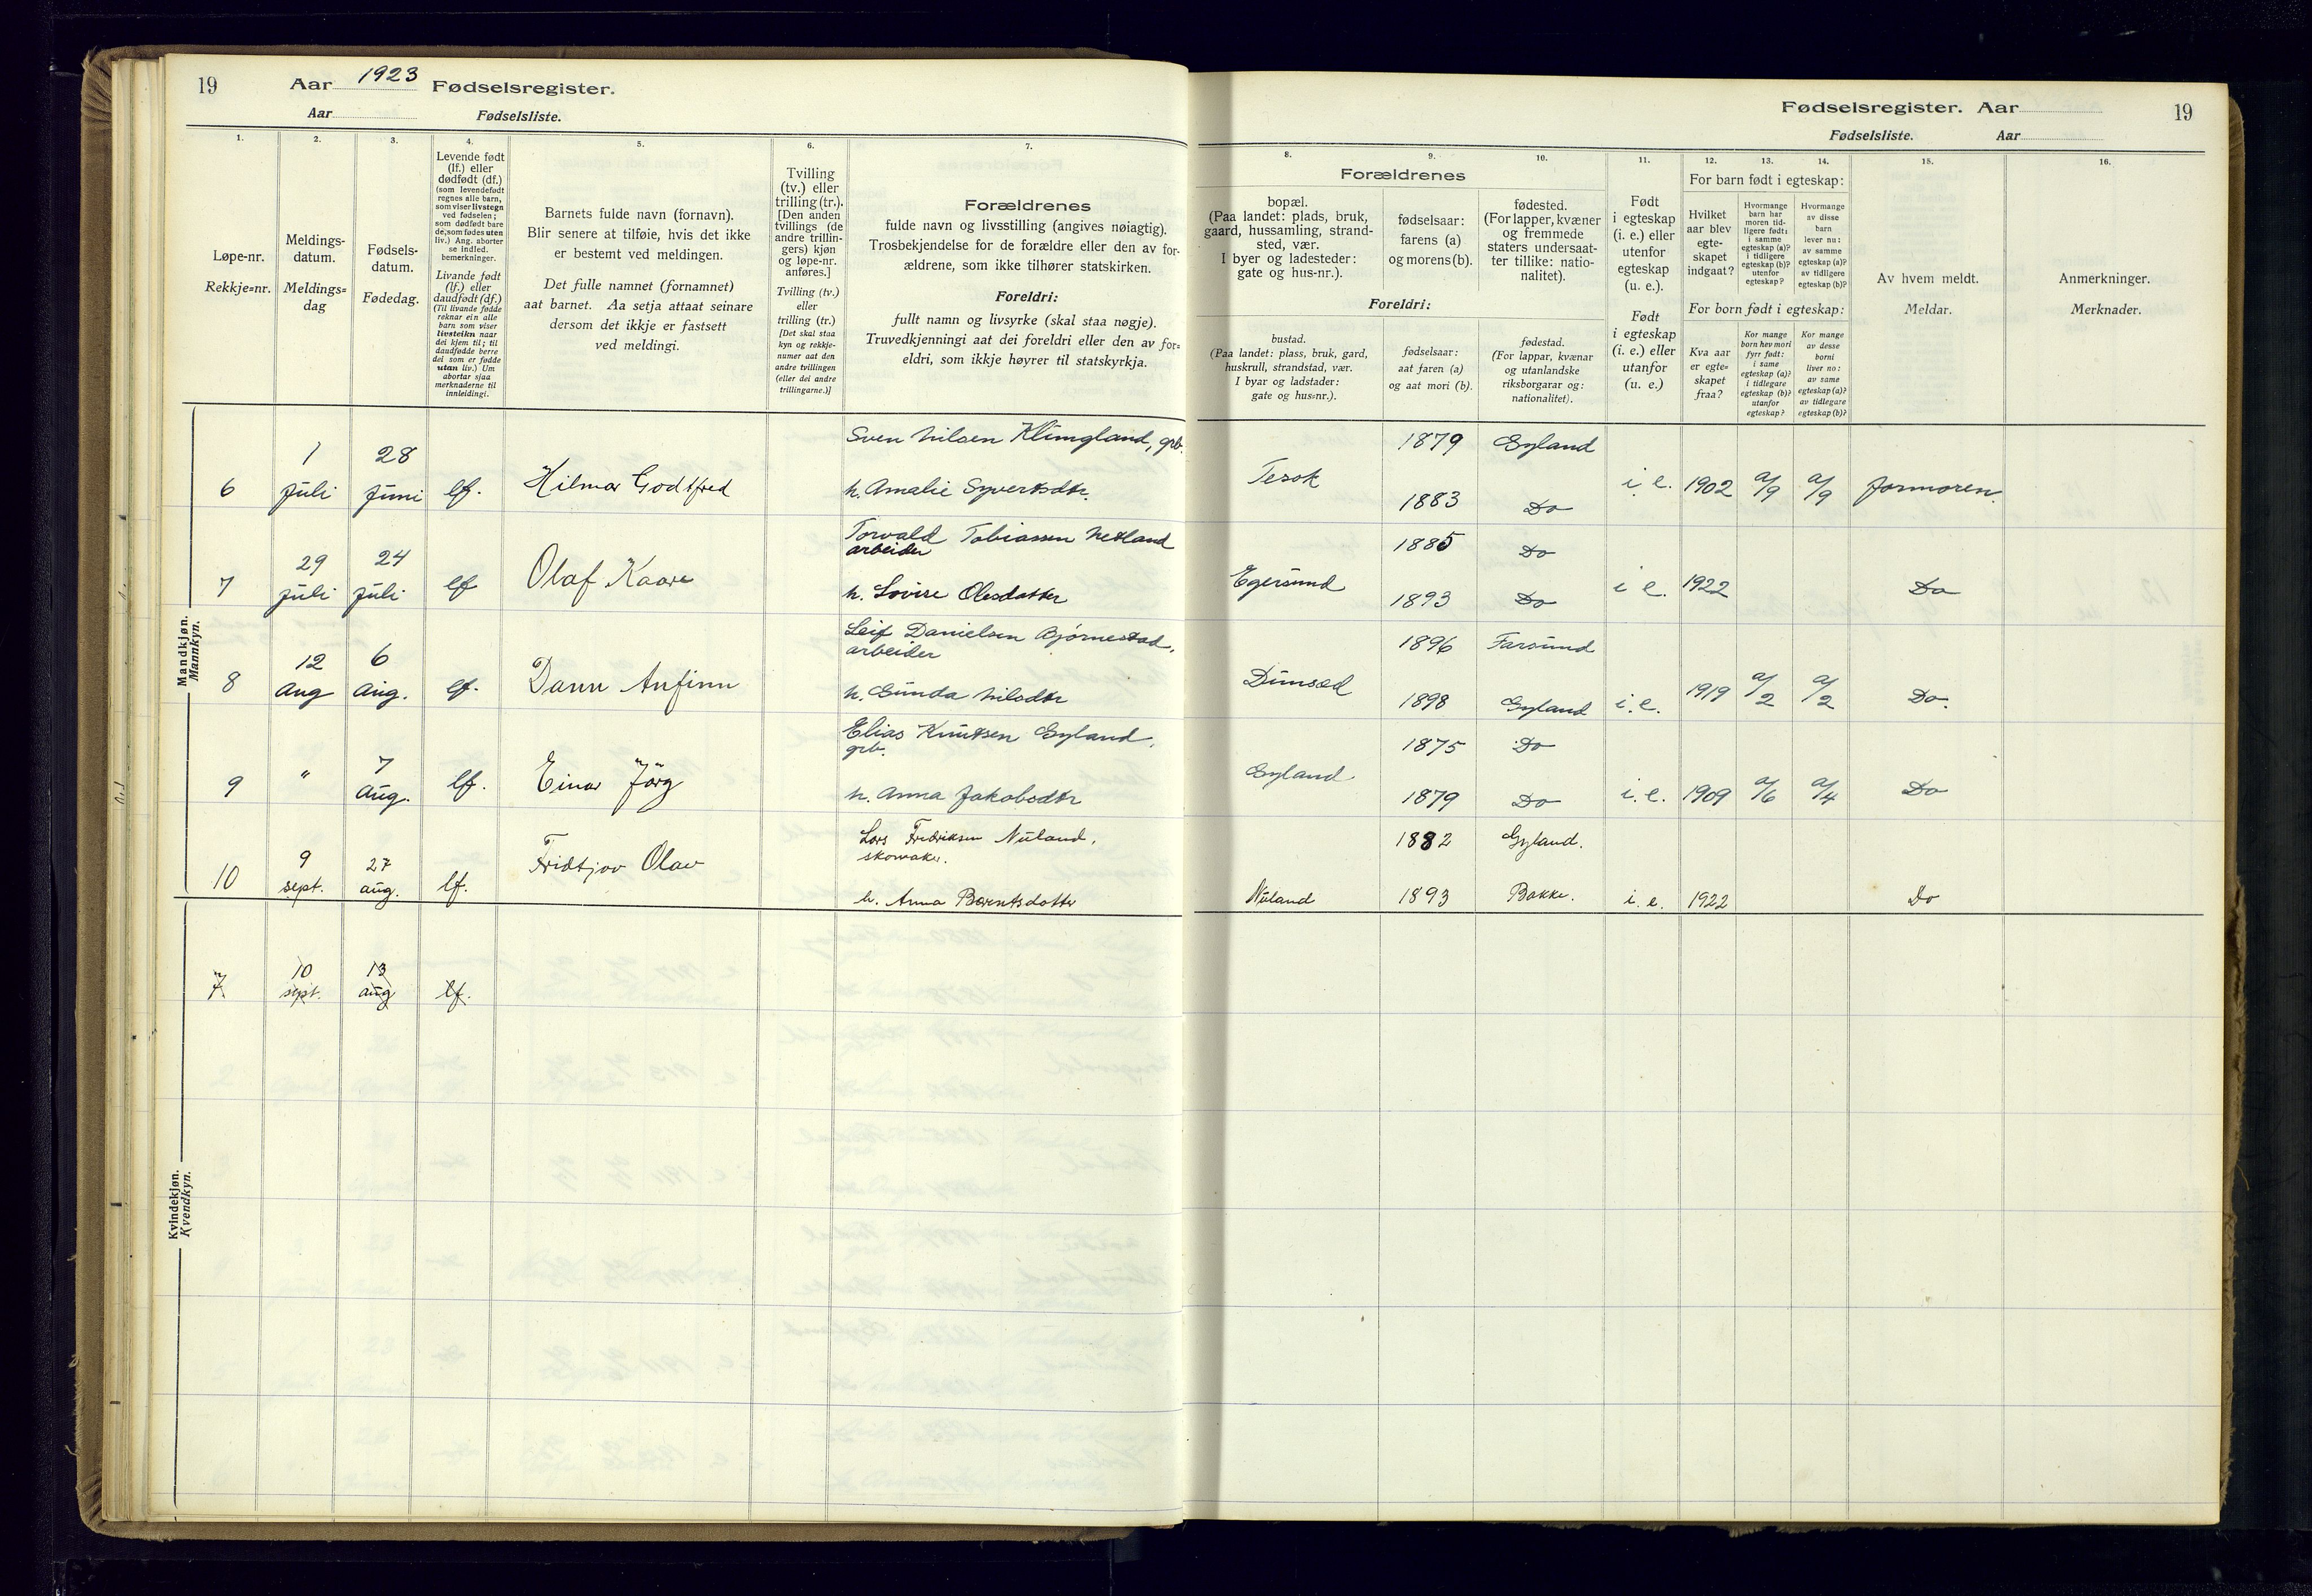 19
Aar 1923 Fødselsregister.
Aar Fødselsliste.
Fødselsregister. Aar
19
Fødselsliste. Aar
1.
Løpe-nr.
Rekkje=nr.
2.
Meldings-
datum.
Meldings=
dag
3.
Fødsels-
datum.
Fødedag.
4.
Levende født
(lf.) eller
dødfødt (df.)
(som levendefødt
regnes alle barn,
som viser livstegn
ved fødselen;
som dødfødt bare
de, som fødes uten
liv.) Ang. aborter
se indled.
bemerkninger.
Livande født
(lf.) eller
daudfødt (df.)
(Til livande fødde
reknar ein alle
barn som viser
livsteikn naar
dei kjem til; til
daudfødde berre
dei som er fødde
utan liv.) Um
abortar sjaa
merknaderne til
innleidingi.
5.
Barnets fulde navn (fornavn).
Blir senere at tilføie, hvis det ikke
er bestemt ved meldingen.
Det fulle namnet (fornamnet)
aat barnet. Aa setja attaat seinare
dersom det ikkje er fastsett
ved meldingi.
6.
Tvilling
(tv.) eller
trilling (tr.).
[Den anden
tvillings (de
andre trillin-
gers) kjøn
og løpe-nr.
anføres.]
Tvilling (tv.)
eller
trilling (tr.)
[Det skal staa
kyn og rekkje-
numer aat den
andre tvillingen
(eller dei andre
trillingarne.)]
7.
Forældrenes
fulde navn og livsstilling (angives nøiagtig).
Trosbekjendelse for de forældre eller den av for-
ældrene, som ikke tilhører statskirken.
Foreldri:
fullt namn og livsyrke (skal staa nøgje).
Truvedkjenningi aat dei foreldri eller den av for=
eldri, som ikkje høyrer til statskyrkja.
8.
Forældrenes
bopæl.
(Paa landet: plads, bruk,
gaard, hussamling, strand-
sted, vær.
I byer og ladesteder:
gate og hus-nr.).
Foreldri:
bustad.
(Paa landet: plass, bruk, gard,
huskrull, strandstad, vær.
I byar og ladstader:
gate og hus=nr.).
9.
fødselsaar:
farens (a)
og morens (b).
fødselsaar:
aat faren (a)
og aat mori (b).
10.
fødested.
(For lapper, kvæner
og fremmede
staters undersaat-
ter tillike: natio-
nalitet).
fødestad.
(For lappar, kvænar
og utanlandske
riksborgarar og:
nationalitet).
11.
Født
i egteskap
(i. e.) eller
utenfor
egteskap
(u. e.).
Født
i egteskap
(i. e.) eller
utanfor
(u. e.)
12.
For barn født i egteskap:
Hvilket
aar blev
egte-
skapet
indgaat?
For born født i egteskap:
Kva aar
er egte=
skapet
fraa?
13.
Hvormange
barn har
moren tid-
ligere født:
i samme
egteskap (a)?
i tidligere
egteskap (b)?
utenfor
egteskap?
Kor mange
born hev mori
fyrr født:
i same
egteskap (a)?
i tidlegare
egteskap (b)?
utanfor
egteskap?
14.
Hvormange
av disse
barn
lever nu:
av samme
egteskap (a)?
av tidligere
egteskap (b)?
Kor mange
av desse
borni
liver no:
av same
egteskap (a)?
av tidlegare
egteskap (b)?
15.
Av hvem meldt.
Meldar.
16.
Anmerkninger.
Merknader.
Mandkjøn.
Mannkyn.
6 1 Juli 28 Juni lf. Hilmar Godtfred
Sven Nilsen Klungland, grb.
h. Amalie Syvertsdtr.
Tesok 1879 Gyland
1883 Do i. e. 1902 a/9 a/9 Jormoren.
7 29 Juli 24 Juli lf Olaf Kaare
Torvald Tobiassen Netland
arbeider
h. Lovise Olesdatter
Egersund 1885 Do
1893 Do i e. 1922 Do
8 12 Aug 6 Aug. lf. Dann Anfinn
Leif Danielsen Bjørnestad,
arbeider
h. Gunda Nilsdtr
Dunsæd 1896 Farsund
1898 Gyland i. e. 1919 a/2 a/2 Do.
9 " 7 Aug. lf. Einar Jörg
Elias Knutsen Gyland,
grb.
h. Anna Jakobsdtr
Gyland 1875 Do
1879 Do i. e. 1909 a/6 a/4 Do
10 9 sept. 27 aug. lf. Fridtjov Olav
Lars Fredriksen Nuland,
skomaker.
h. Anna Berentsdatter
Nuland 1882 Gyland.
1893 Bakke. i. e. 1922 Do
Kvindekjøn.
Kvendkyn.
7 10 sept. 13 aug lf.